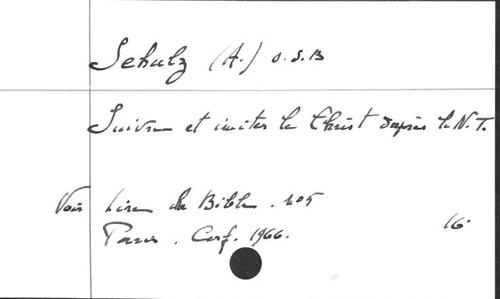 Schulz (A.) O.S.B
Suivre et imiter le Christ d'après le N.T.
Voir Lire la Bible. n°5
Paris. Cerf. 1966.
16°